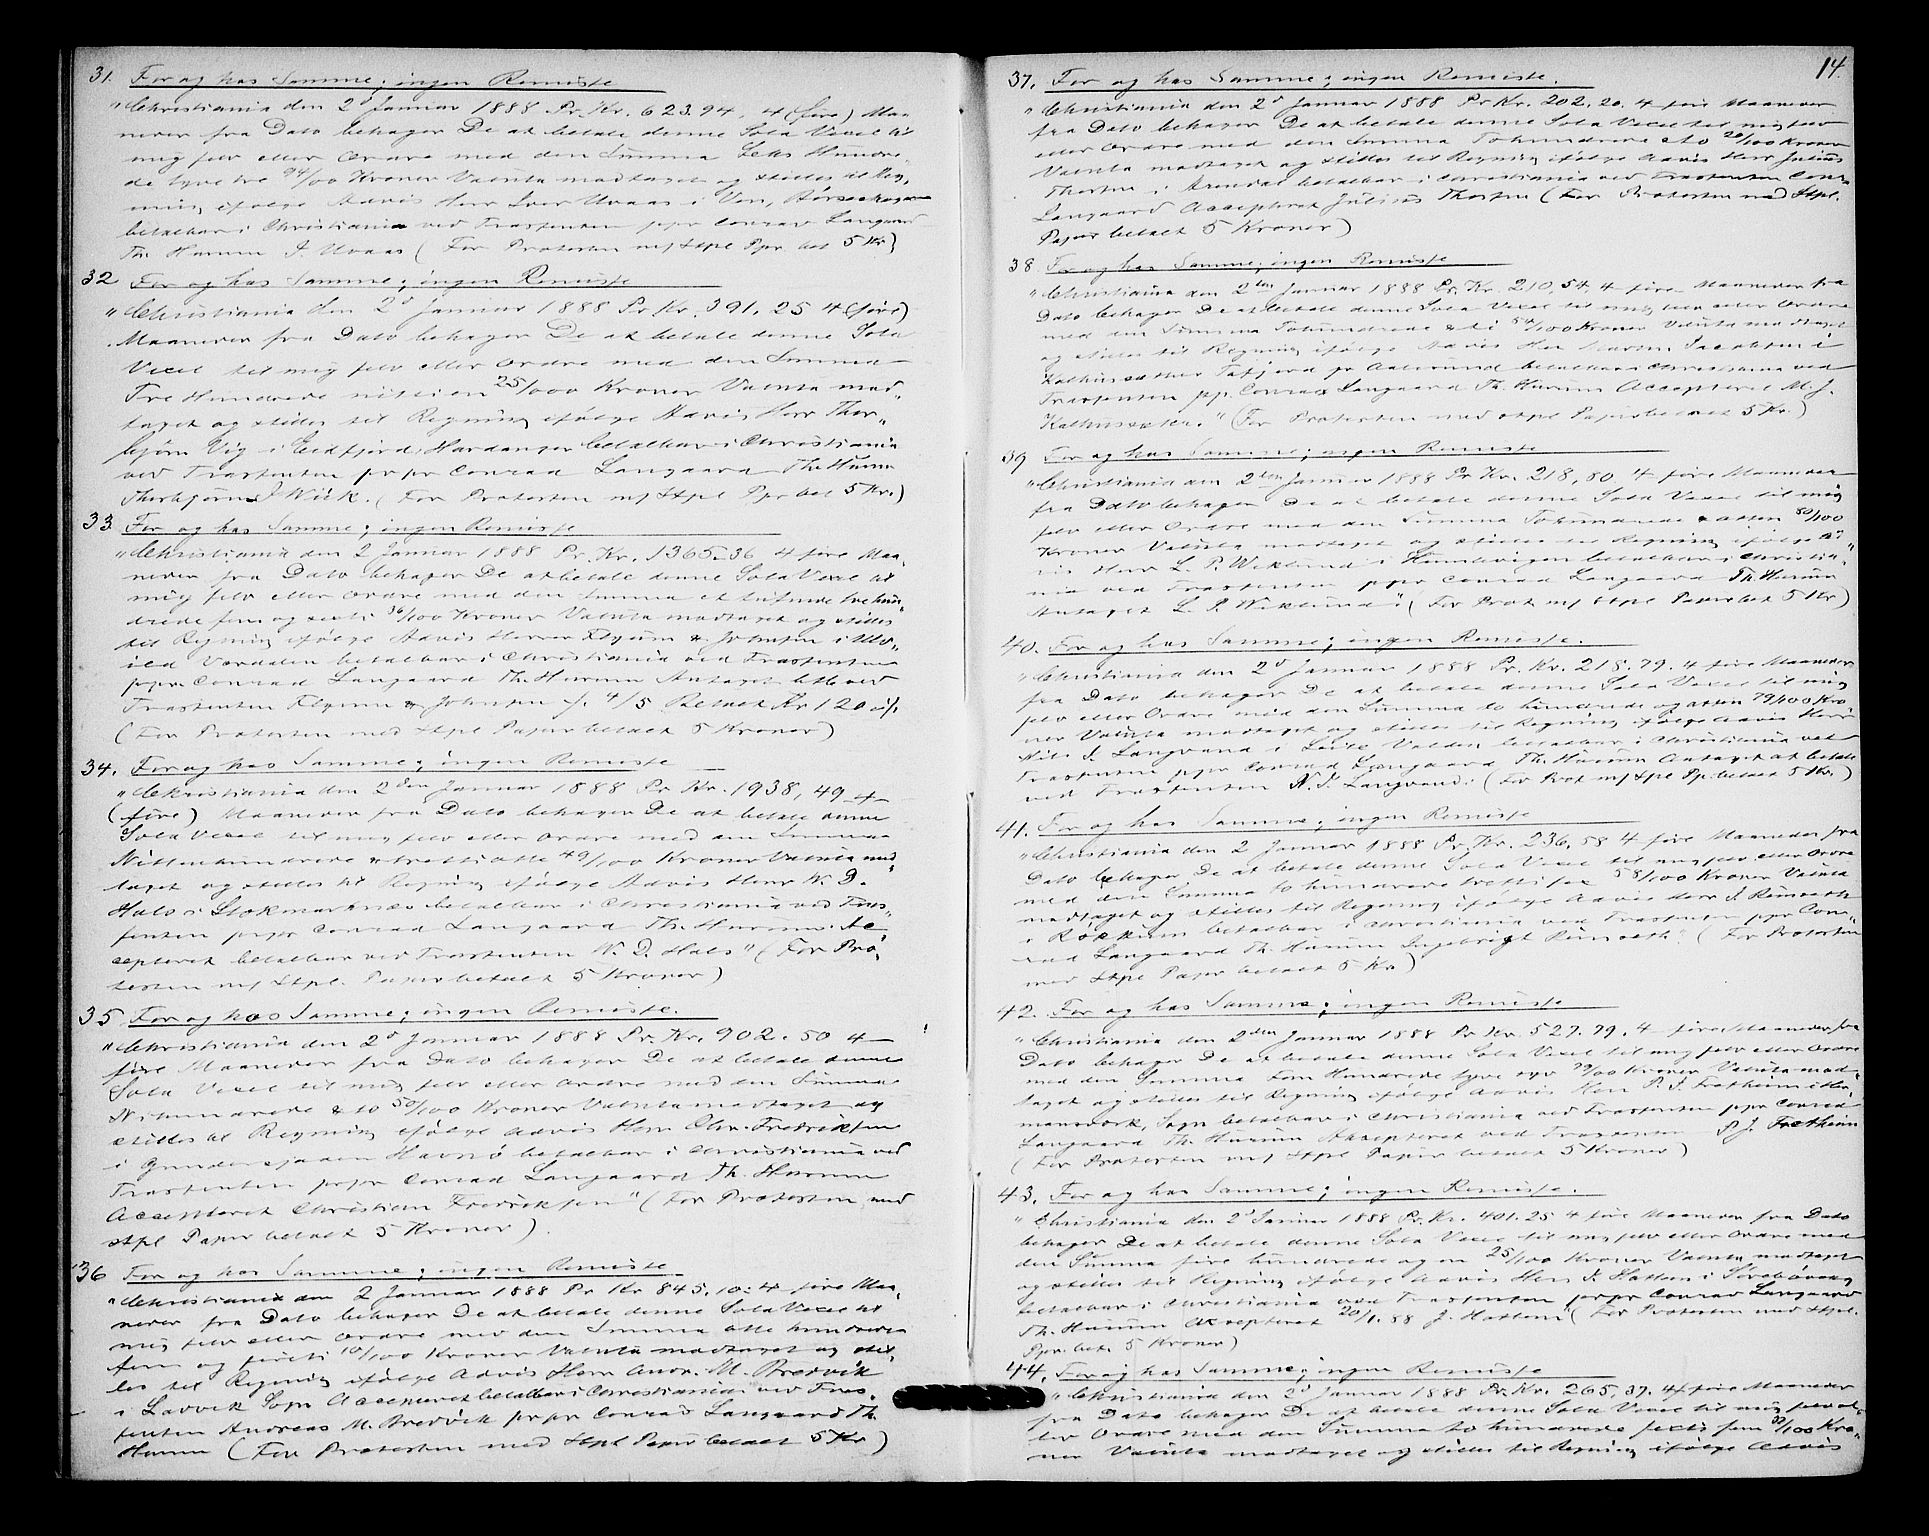 31. For og hos Samme; ingen Remisse
"Christiania den 2d Januar 1888 Pr. Kr. 623.94. 4 (fire) Maa-
neder fra Dato behager De at betale denne Sola Vexel til
mig selv eller Ordre med den Summa Seks Hundre-
de tyve tre 94/100 Kroner Valuta modtaget og stilles til Reg-
ning ifølge Advis Herr Iver Uvaas i
betalbar i Christiania ved Trassenten pr pr Conrad Langaard
Th. Hurum I. Uvaas (For Protesten m/ Stpl Ppr. bet 5 Kr)
32 For og hos Samme; ingen Remisse
"Christiania den 2d Januar 1888 Pr. Kr. 391.25 4 (fire)
Maaneder fra Dato behager De at betale denne Sola
Vexel til mig selv eller Ordre med den Summa
Tre Hundrede nitti en 25/100 Kroner Valuta mod-
taget og stilles til Regning ifølge Advis Herr Thor-
bjørn Vig i Eidfjord Hardanger betalbar i Christiania
ved Trassenten pr pr Conrad Langaard Th. Hurum
Thorbjørn J Wiik. (For Protesten m/ Stpl Ppr bet 5 Kr.)
33 For og hos Samme; ingen Remisse
"Christiania den 2 Januar 1888 Pr. Kr. 1365.36 4 fire Maa-
neder fra Dato behager De at betale denne Sola Vexel til
mig selv eller Ordre med den Summa et tusinde tre hun-
drede fem og sexti 36/100 Kroner Valuta modtaget og stilles
til Regning ifølge Advis Herrer & Johnsen i
Værdalen betalbar i Christiania ved Trassenten
pr pr Conrad Langaard Th. Hurum Antaget ved
Trassenten & Johnsen 4/5 Betalt Kr 120
(For Protesten med Stpl Papir betalt 5 Kroner)
34. For og hos Samme; ingen Remisse
"Christiania den 2den Januar 1888 Pr. Kr. 1938,49 4
(fire) Maaneder fra Dato behager De at betale denne
Sola Vexel til mig selv eller Ordre med den Summa
Nittenhundrede & trettiotte 49/100 Kroner Valuta mod-
taget og stilles til Regning ifølge Advis Herr W. D.
Hals i Stokmarknæs betalbar i Christiania ved Tras-
senten pr pr Conrad Langaard Th. Hurum. Ac-
cepteret betalbar ved Trassenten W. D. Hals" (For Pro-
testen m/ Stpl. Papir betalt 5 Kroner)
35 For og hos Samme; ingen Remisse.
"Christiania den 2d Januar 1888 Pr. Kr. 902.50 4
fire Maaneder fra Dato behager De at betale denne
Sola Vexel til mig selv eller Ordre med den Summa
Nihundrede & to 50/100 Kroner Valuta modtaget og
stilles til Regning ifølge Advis Herr Chr. Fredriksen
i Havnø betalbar i Christiania ved
Trassenten pr pr Conrad Langaard Th. Hurum
Accepteret Christian Fredriksen" (For Protesten med
stpl Papir betalt 5 Kroner).
36 For og hos Samme; ingen Remisse.
"Christiania den 2 Januar 1888 Pr Kr 845.10. 4 fire Maa-
neder fra Dato behager De at betale denne Sola Vexel til
mig selv eller Ordre med den Summa otte hundrede
fem og firti 10/100 Kroner Valuta modtaget og stil-
les til Regning ifølge Advis Herr Andr. M. Bredvik
i Ladvik Sogn Accepteret betalbar i Christiania ved Tras-
senten Andreas M. Bredvik pr pr Conrad Langaard Th.
Hurum (For Protesten med Stpl Papir betalt 5 Kr)
14.
37. For og hos Samme; ingen Remisse.
"Christiania den 2d Januar 1888 Pr Kr. 202.20. 4 fire Maaneder
fra Dato behager De at betale denne Sola Vexel til mig selv
eller Ordre med den Summa Tohundrede & to 20/100 Kroner
Valuta modtaget og stilles til Regning ifølge Advis Herr Julius
Thorsen i Arendal betalbar i Christiania ved Trassenten Conr.
Langaard Accepteret Julius Thorsen (For Protesten med Stpl.
Papir betalt 5 Kroner)
38 For og hos Samme; ingen Remisse
"Christiania den 2den Januar 1888 Pr. Kr. 210,54. 4 fire Maaneder fra
Dato behager De at betale denne Sola Vexel til mig selv eller Ordre
med den Summa Tohundrede & ti 54/100 Kroner Valuta modtaget
og stilles til Regning ifølge Advis Herr Martin Jacobsen i
Tafjord pr Aalesund betalbar i Christiania ved
Trassenten pp. Conrad Langaard Th. Hurum Accepteret M. J.
(For Protesten med stpl Papir betalt 5 Kr.)
39 For og hos Samme; ingen Remisse
"Christiania den 2den Januar 1888 Pr Kr. 218,80 4 fire Maaneder
fra Dato behager De at betale denne Sola Vexel til mig
selv eller Ordre med den Summa Tohundrede & atten 80/100
Kroner Valuta modtaget og stilles til Regning ifølge Ad-
vis Herr L. P. Wiklund i betalbar i Christia-
nia ved Trassenten pr pr Conrad Langaard Th. Hurum
Antaget L. P. Wiklund" (For Prot m/ Stpl Papir bet 5 Kr)
40. For og hos Samme; ingen Remisse.
"Christiania den 2d Januar 1888 Pr. Kr. 218.79. 4 fire Maaneder
fra Dato behager De at betale denne Sola Vexel til mig
selv eller Ordre med den Summa to hundrede og atten 79/100 Kro-
ner Valuta modtaget og stilles til Regning ifølge Advis Herr
Nils J. Langvand i betalbar i Christiania ved
Trassenten pr pr Conrad Langaard Th. Hurum Antaget at betale
ved Trassenten N. J. Langvand. (For Prot m/ Stpl Pp. betalt 5 Kr.)
41. For og hos Samme; ingen Remisse
"Christiania den 2 Januar 1888 Pr. Kr. 236,58 4 fire Maaneder fra
Dato behager De at betale denne Sola Vexel til mig selv eller Ordre
med den Summa to hundrede tretti sex 58/100 Kroner Valuta
modtaget og stilles til Regning ifølge Advis Herr I.
i betalbar i Christiania ved Trassenten pr pr Con-
rad Langaard Th. Hurum Ingebrigt (For Protesten
med Stpl Papir betalt 5 Kr.)
42. For og hos Samme; ingen Remisse
"Christiania den 2den Januar 1888 Pr Kr 527.79. 4 fire Maaneder fra
Dato behager De at betale denne Sola Vexel til mig selv eller Ordre
med den Summa Fem Hundrede tyve syv 79/100 Kroner Valuta mod-
taget og stilles til Regning ifølge Advis Herr P. J. Fretheim i Her-
mansverk, Sogn betalbar i Christiania ved Trassenten pr pr Conrad
Langaard Th. Hurum Accepteret ved Trassenten P J. Fretheim
(For Protesten m/ Stpl Papir betalt 5 Kroner)
43. For og hos Samme; ingen Remisse.
"Christiania den 2d Januar 1888 Pr. Kr. 401.25 4 fire Maaneder fra Dato
behager De at betale denne Sola Vexel til mig selv eller Ordre med
den Summa fire hundrede og en 25/100 Kroner Valuta modtaget
og stilles til Regning ifølge Advis Herr J. i
betalbar i Christiania ved Trassenten pr pr Conrad Langaard
Th. Hurum Accepteret 20/1. 88 J. (For Protesten med Stpl.
Ppr. bet. 5 Kroner)
44. For og hos Samme; ingen Remisse
"Christiania den 2d Januar 1888 Pr. Kr. 265,37. 4 fire Maaneder
fra Dato behager De at betale denne Sola Vexel til mig selv el-
ler Ordre med den Summa to hundrede sexti fem 37/100 Kro-
ner Valuta modtaget og stilles til Regning ifølge Advis